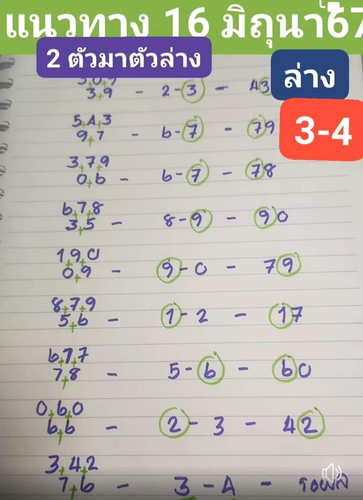 แนวทาง 16 มิถุนา67
2 ตัวมาตัวล่าง
ล่าง
3-4
3,9 - 2-3 - 43
5,4,3
9,7 - 6-7 - 79
3,7,9
0,6 - 6-7 - 78
6,7,8
3,5 - 8-9 - 90
1,9,0
0,9 - 9-0 - 79
8,7,9
5,6 - 1-2 - 17
6,7,7
7,8 - 5-6 - 60
0,6,0
6,6 - 2-3 - 42
3,4,2
7,6 - 3-4 - รอผล